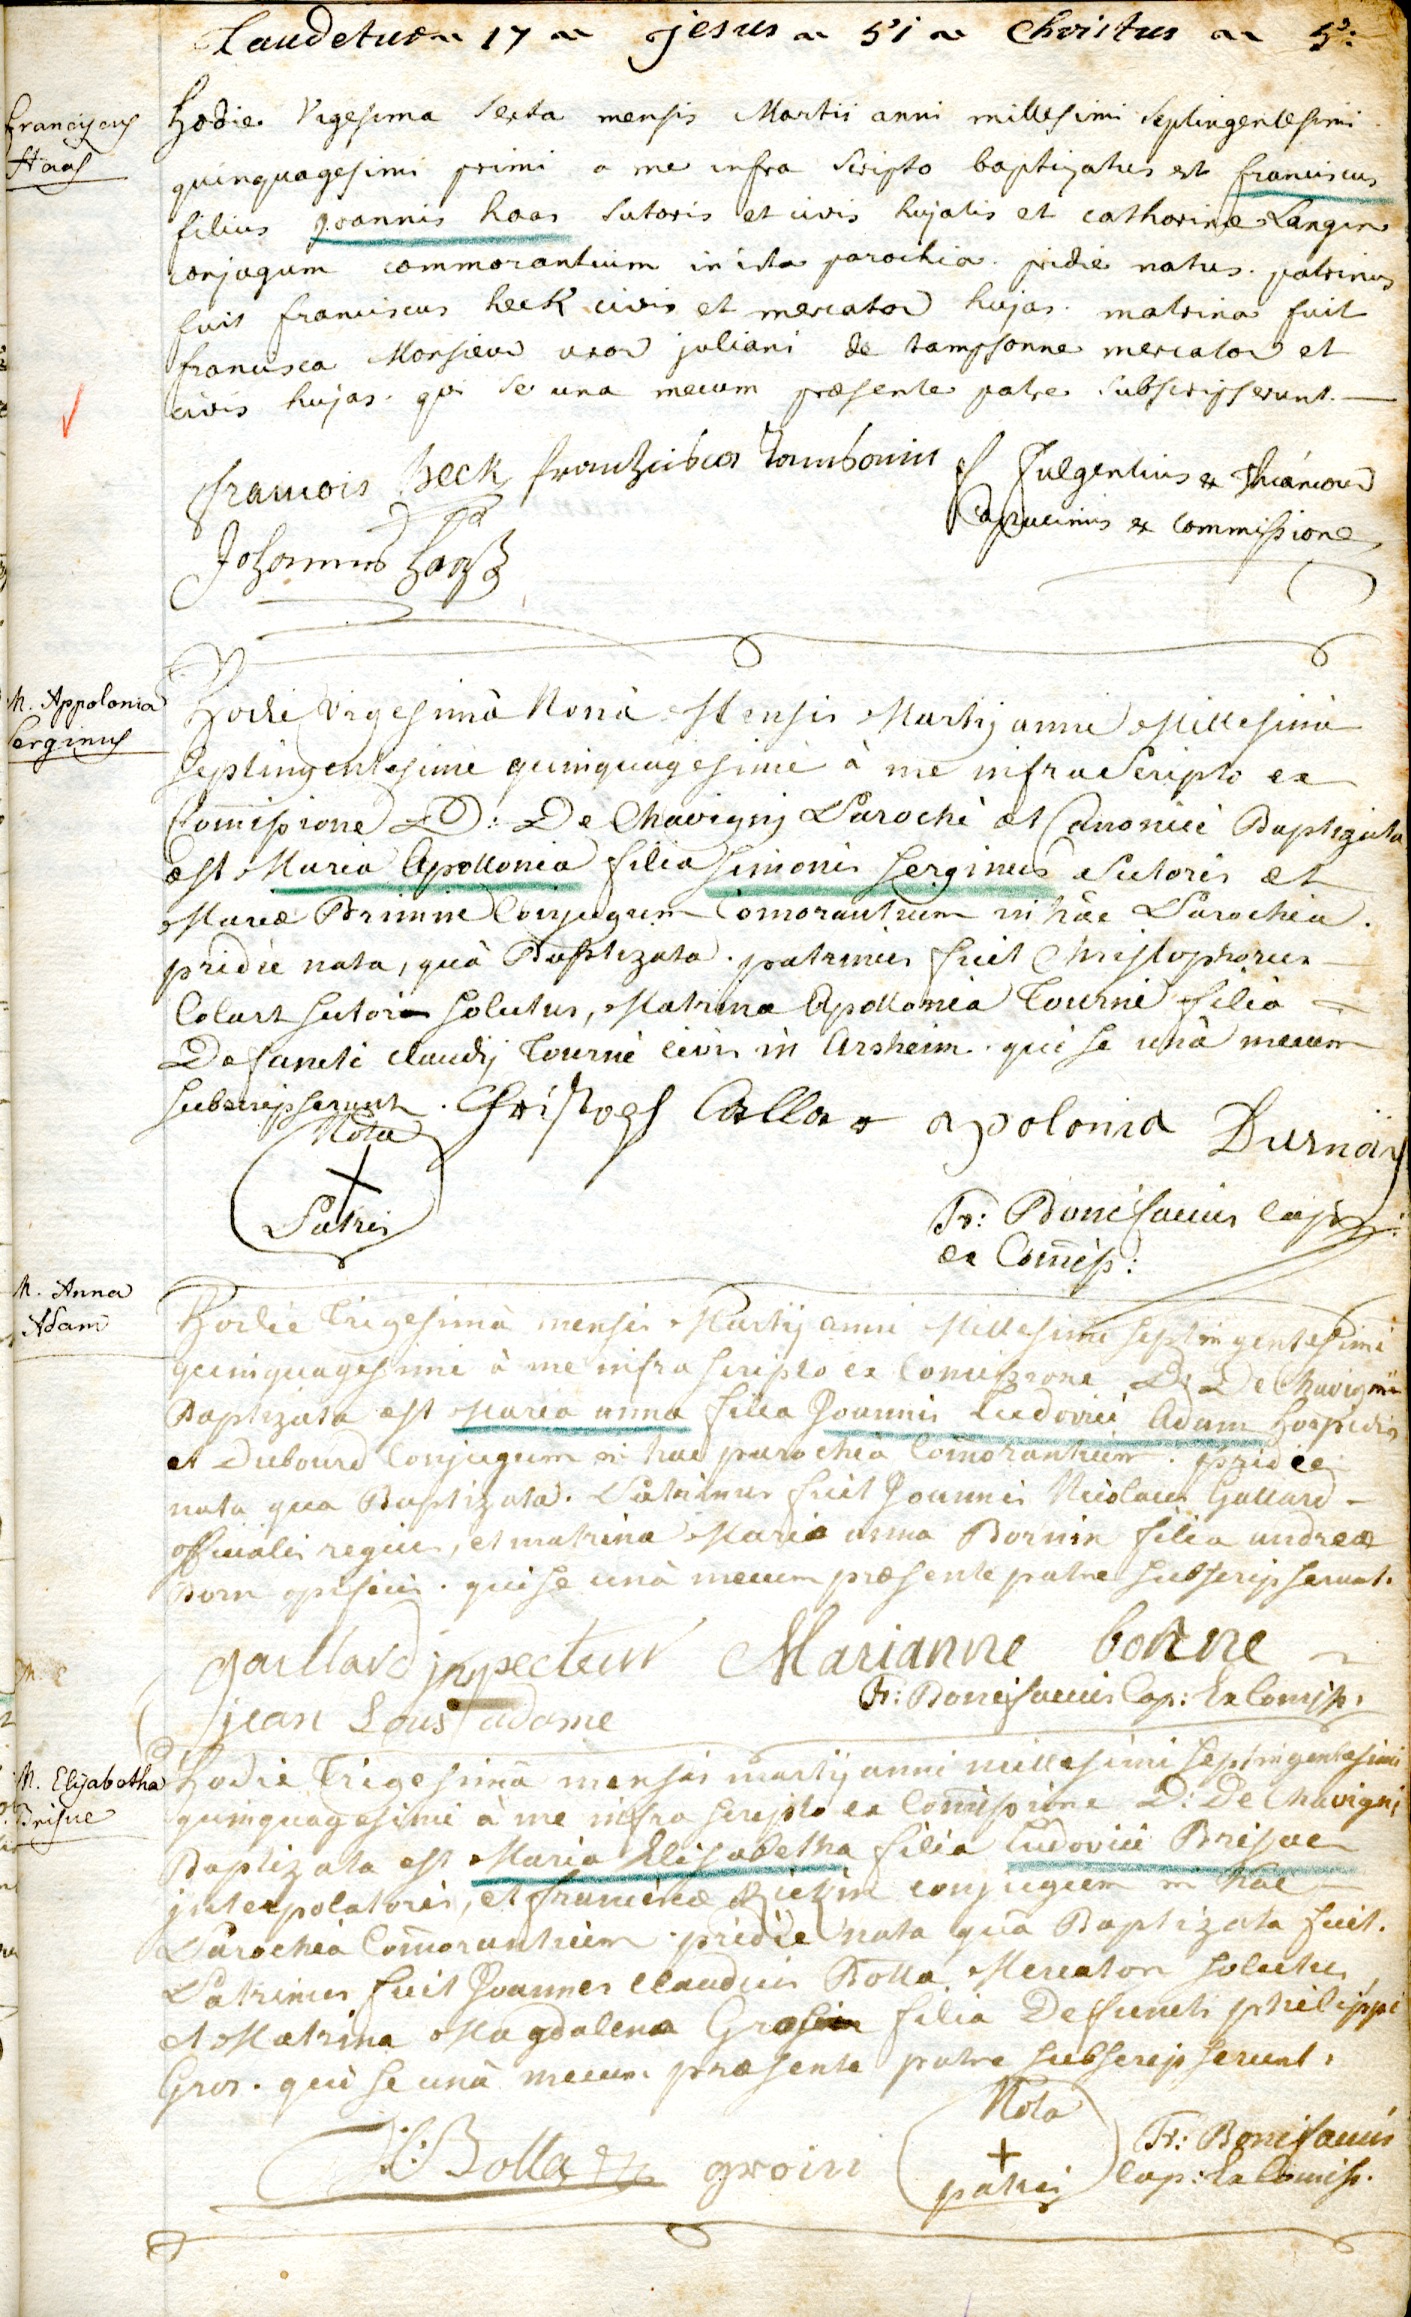 Laudetur 17 Jesus 51 Christus 5
Franciscus
Haas
Hodie Vigesima Sexta mensis Martii anni millesimi Septingentesimi
quinquagesimi primi a me infra Scripto baptizatus est franciscus
filius Joannis haas Sutoris et civis hujatis et catharinæ Langin
conjugum commorantium in ista parochia. pridie natus. patrinus
fuit franciscus heck civis et mercator hujas. matrina fuit
francisca Monsieur uxor juliani de tampsonne mercator et
civis hujas. qui se una mecum præsente patre Subscripserunt.
francois heck franzisca Tambonin f Fulgentius ex
Johannes Capucinus ex Commissione
M. Appolonia
Serginus
Hodie Vigesimà Nonà Mensis Martij anni Millesimi
Septingentesimi quinquagesimi à me infra Scripto ex
Com̄issione D: De Chavignij Parochi et Canonici Baptizata
est Maria Apollonia filia Simonis Serginus Sutoris et
Mariæ Brimin Conjugum Com̄orantium in hâc Parochia.
pridie nata, quà Baptizata. patrinus fuit Christophorus
Colart Sutor Solutus, Matrina Apollonia Tourné filia
Defuncti Claudij Tourné civis in Arsheim. qui se unà mecum
Subscripserunt. Christoph Calla apolonia Durnä
Nota
Patris
Fr: Bonifacius Cap:
ex Com̄iss:
M. Anna
Adam
Hodie Trigesimà mensis Martij anni Millesimi Septingentesimi
quinquagesimi à me infra Scripto ex Com̄issione D. De Chavignii
Baptizata est Maria anna filia Joannis Ludovici Adam hospitis
et Dubourd Conjugum in hac parochia Com̄orantium. pridie
nata qua Baptizata. Patrinus fuit Joannes Nicolaus Gallard
officialis regius, et matrina Maria anna Bornin filia andreæ
Born opificis. qui se unà mecum præsente patre Subscripserunt.
gaillard inspecteur Marianne borne
jean Lous adame Fr: Bonifacius Cap: Ex Comiss:
M. Elisabetha
Brisue
Hodie Trigesimâ mensis martij anni millesimi Septingentesimi
quinquagesimi à me infra Scripto ex Com̄issione D: De Chavignij
Baptizata est Maria Elisabetha filia Ludovici Brisue
interpolatoris, et franciscæ conjugum in hac
Parochia Com̄orantium. pridie nata quâ Baptizata fuit.
Patrinus fuit Joannes Claudius Bolla Mercator Solutus
et Matrina Magdalena filia Defuncti philippi
Gros. qui se unà mecum præsente patre Subscripserunt.
J:C: Bolla groin
Nota
patris
Fr: Bonifacius
Cap: Ex Comiss.